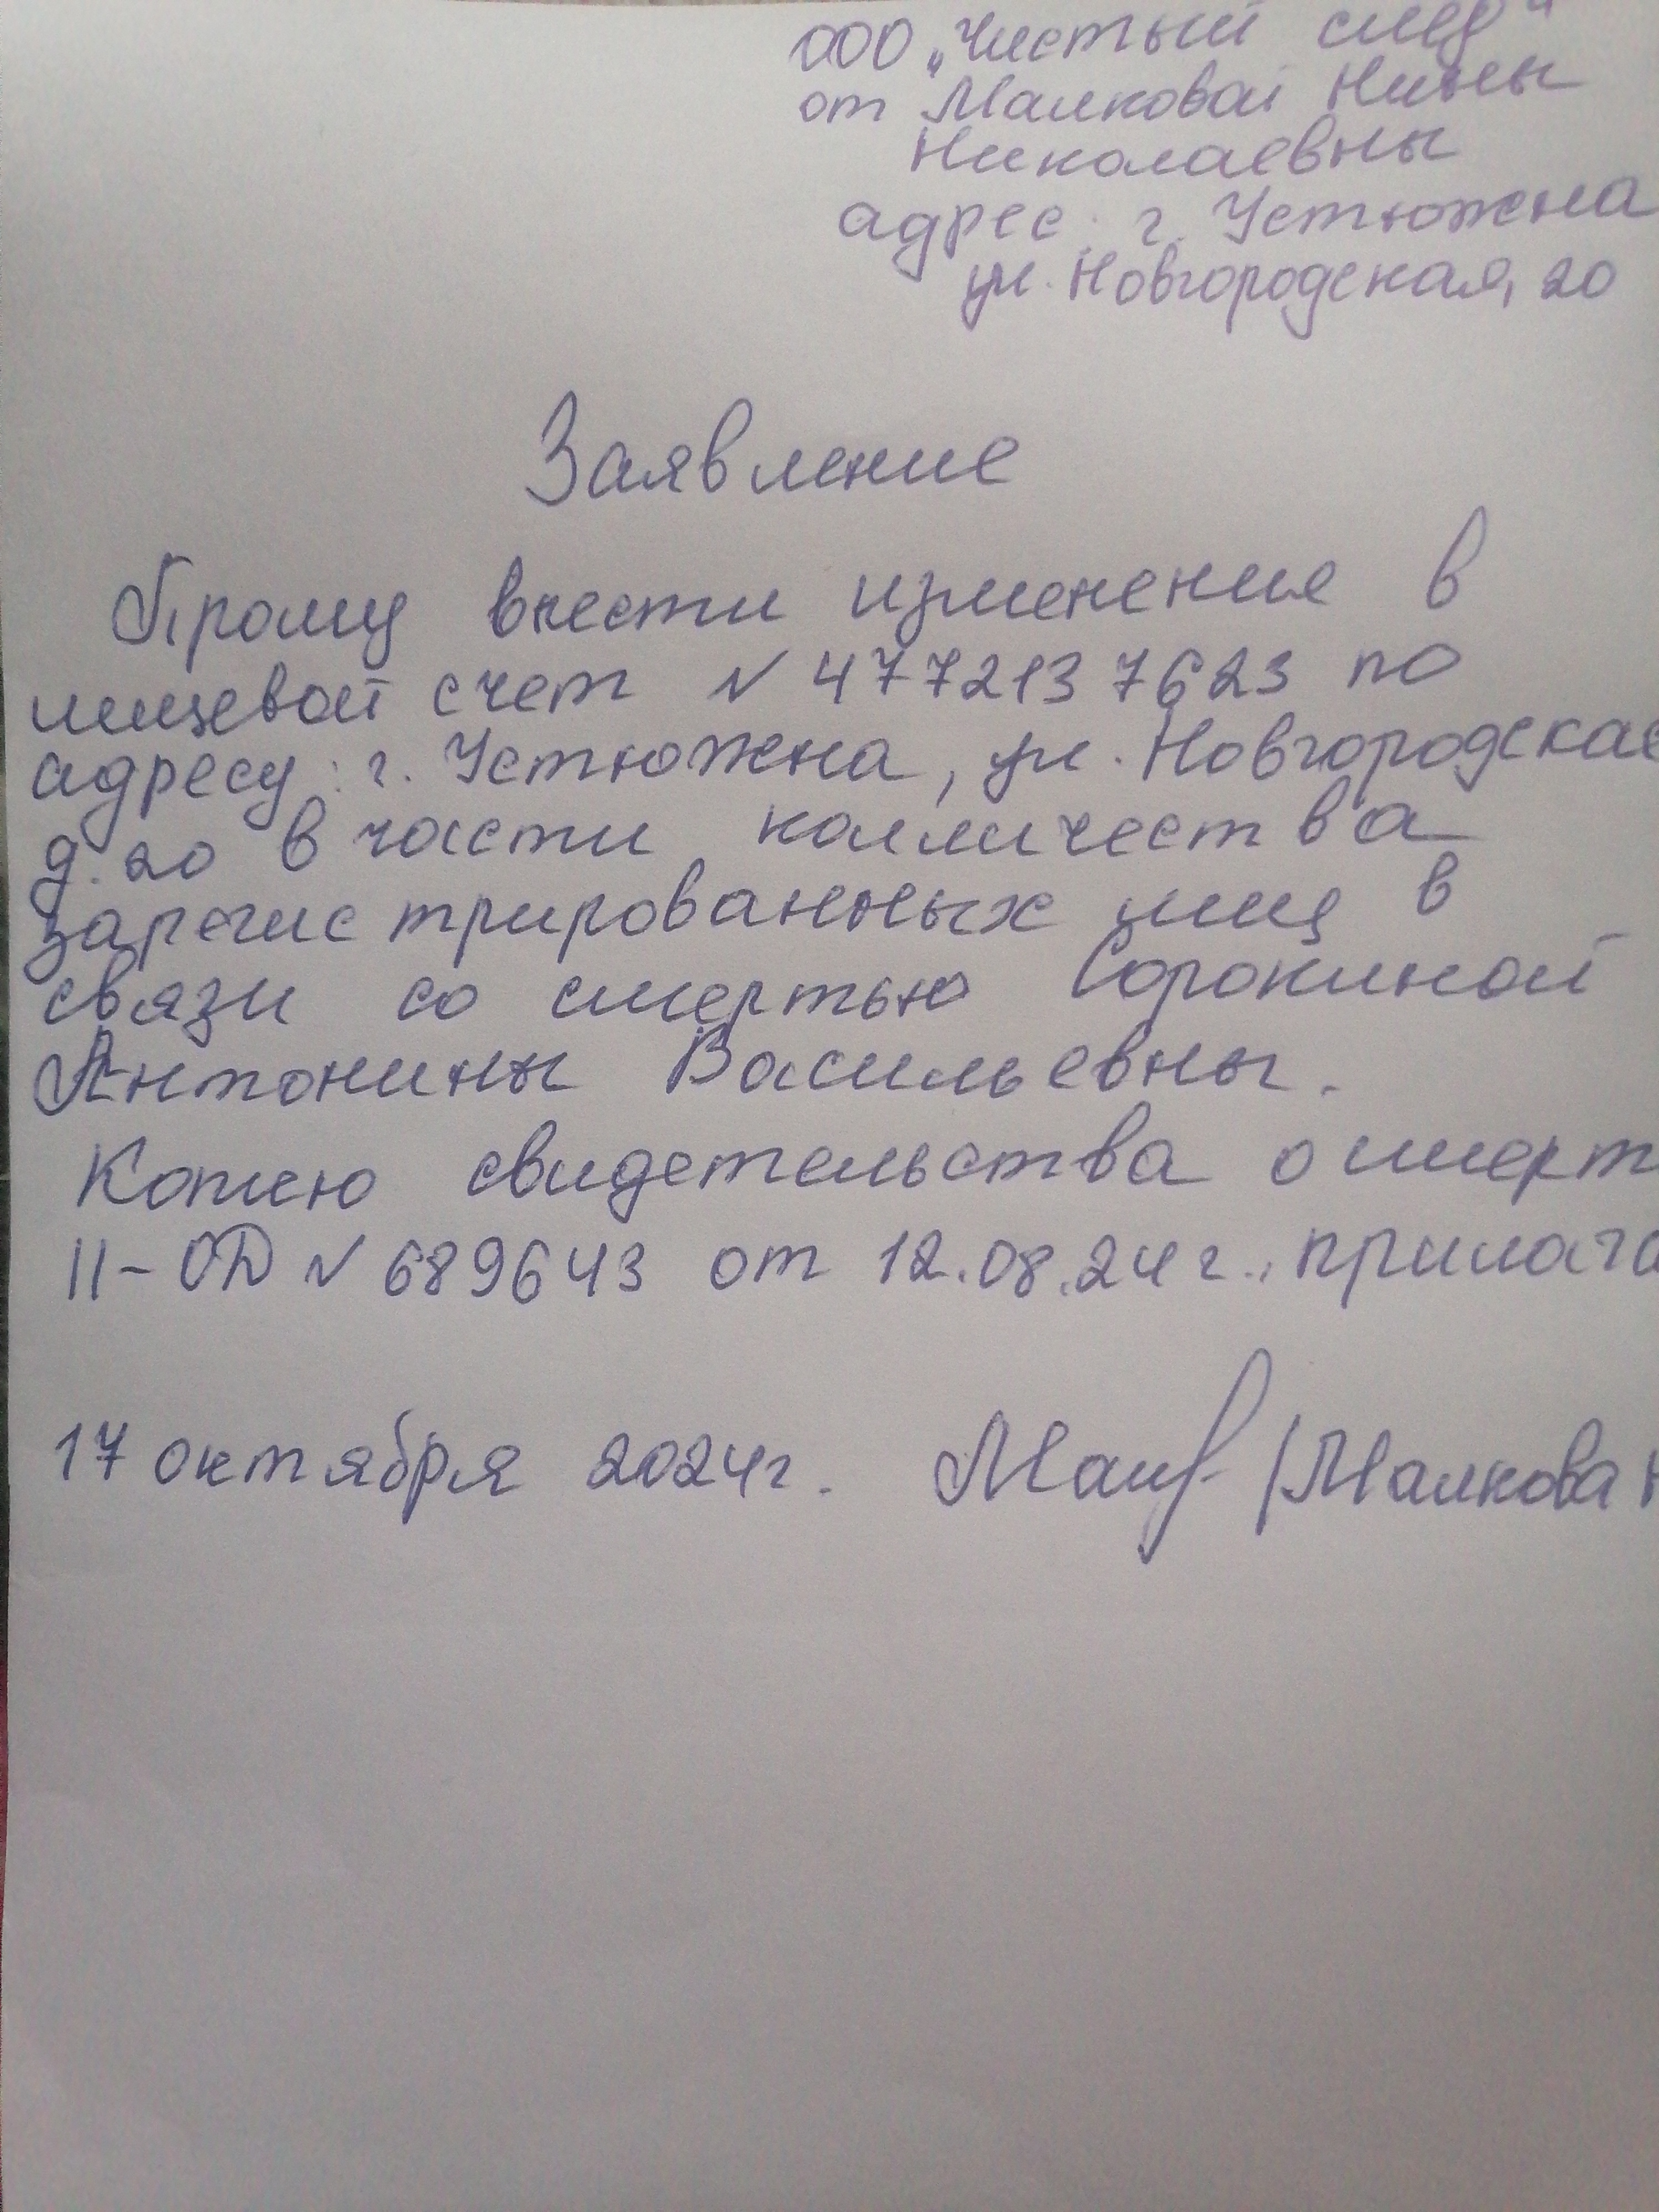 ООО „Чистый след"
от Малковой Нины
Николаевны
адрес: г. Устюжна
ул. Новгородская, 20
Заявление
Прошу внести изменения в
лицевой счет № 4772137623 по
адресу: г. Устюжна, ул. Новгородская
д. 20 в части колличества
зарегистрированных лиц в
связи со смертью Сорокиной
Антонины Васильевны.
Копию свидетельства о смерт
II-ОД № 689643 от 12.08.24г., прилага
17 октября 2024г. /Малкова Н